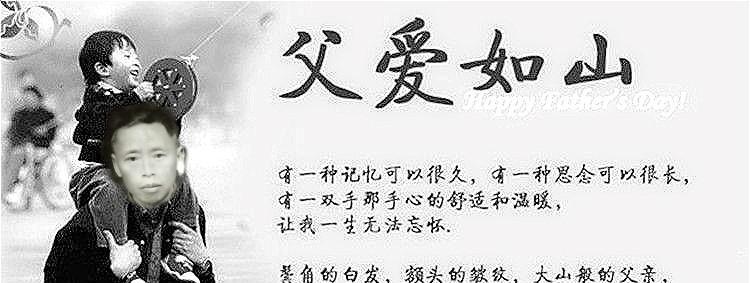 父爱如山
Happy Father's Day!
有一种记忆可以很久，有一种思念可以很长，
有一双手那手心的舒适和温暖，
让我一生无法忘怀.
鬓角的白发，额头的皱纹，大山般的父亲，